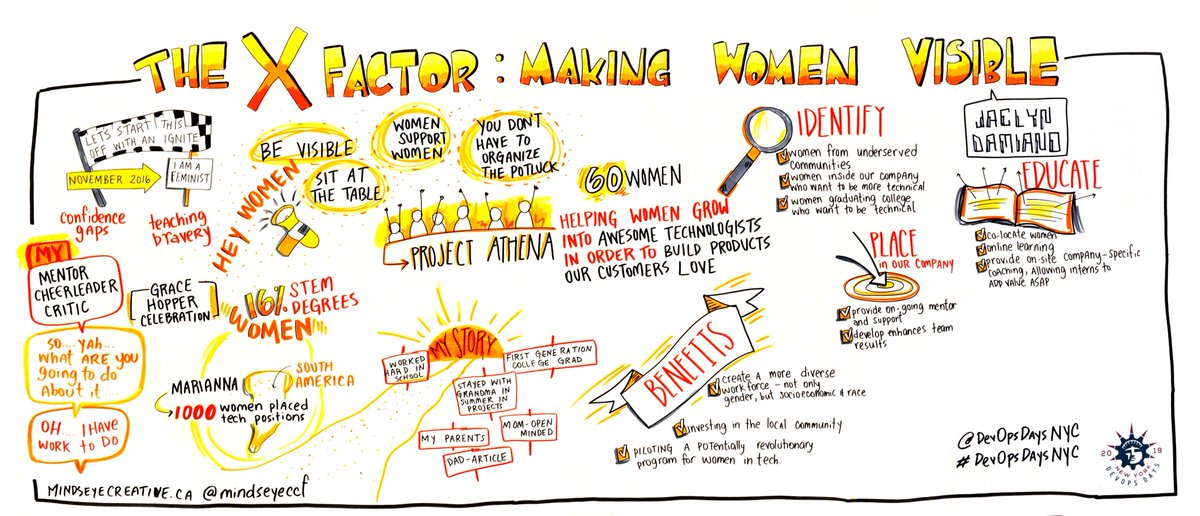 THE X FACTOR: MAKING WOMEN VISIBLE
JACLYN
DAMIANO
LET'S START THIS
OFF WITH AN IGNITE
NOVEMBER 2016
I AM A
FEMINIST
confidence
gaps
teaching
bravery
MY
MENTOR
CHEERLEADER
CRITIC
SO.... YAH...
WHAT ARE YOU
going to do
About it....
OH.... I HAVE
WORK to DO
GRACE
HOPPER
CELEBRATION
HEY WOMEN
BE VISIBLE
SIT AT
THE TABLE
WOMEN
SUPPORT
WOMEN
YOU DON'T
HAVE TO
ORGANIZE
THE POTLUCK
16% STEM
DEGREES
WOMEN
MARIANNA
SOUTH
AMERICA
1000 women placed
tech positions
PROJECT ATHENA
60 WOMEN
HELPING WOMEN GROW
INTO AWESOME TECHNOLOGISTS
IN ORDER TO BUILD PRODUCTS
OUR CUSTOMERS LOVE
MY STORY
WORKED
HARD IN
SCHOOL
FIRST GENERATION
COLLEGE GRAD
STAYED WITH
GRANDMA IN
SUMMER IN
PROJECTS
MOM-OPEN
MINDED
MY PARENTS
DAD-ARTICLE
IDENTIFY
women from underserved
communities
women inside our company
who want to be more technical
women graduating college
who want to be technical
PLACE
IN OUR COMPANY
provide on-going mentor
and support
develop enhances team
results
EDUCATE
co-locate women
online learning
provide on-site company-specific
coaching, allowing interns to
ADD VALUE ASAP
BENEFITS
CREATE A more diverse
workforce - not only
gender, but socioeconomic & race
investing in the local community
PILOTING A POTENTIALLY revolutionary
program for women in tech.
@DevOpsDaysNYC
#DevOpsDaysNYC
2019
NEW YORK
DEVOPS DAYS
MINDSEYECREATIVE.CA @mindseyeccf